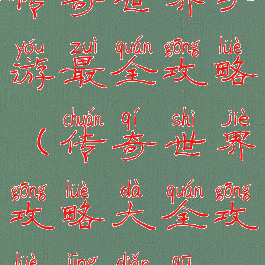 传奇世界
yóu zuì quán gōng lüè
游最全攻略
chuán qí shì jiè
（传奇世界
gōng lüè dà quán gōng
攻略大全攻
lüè jīng diǎn